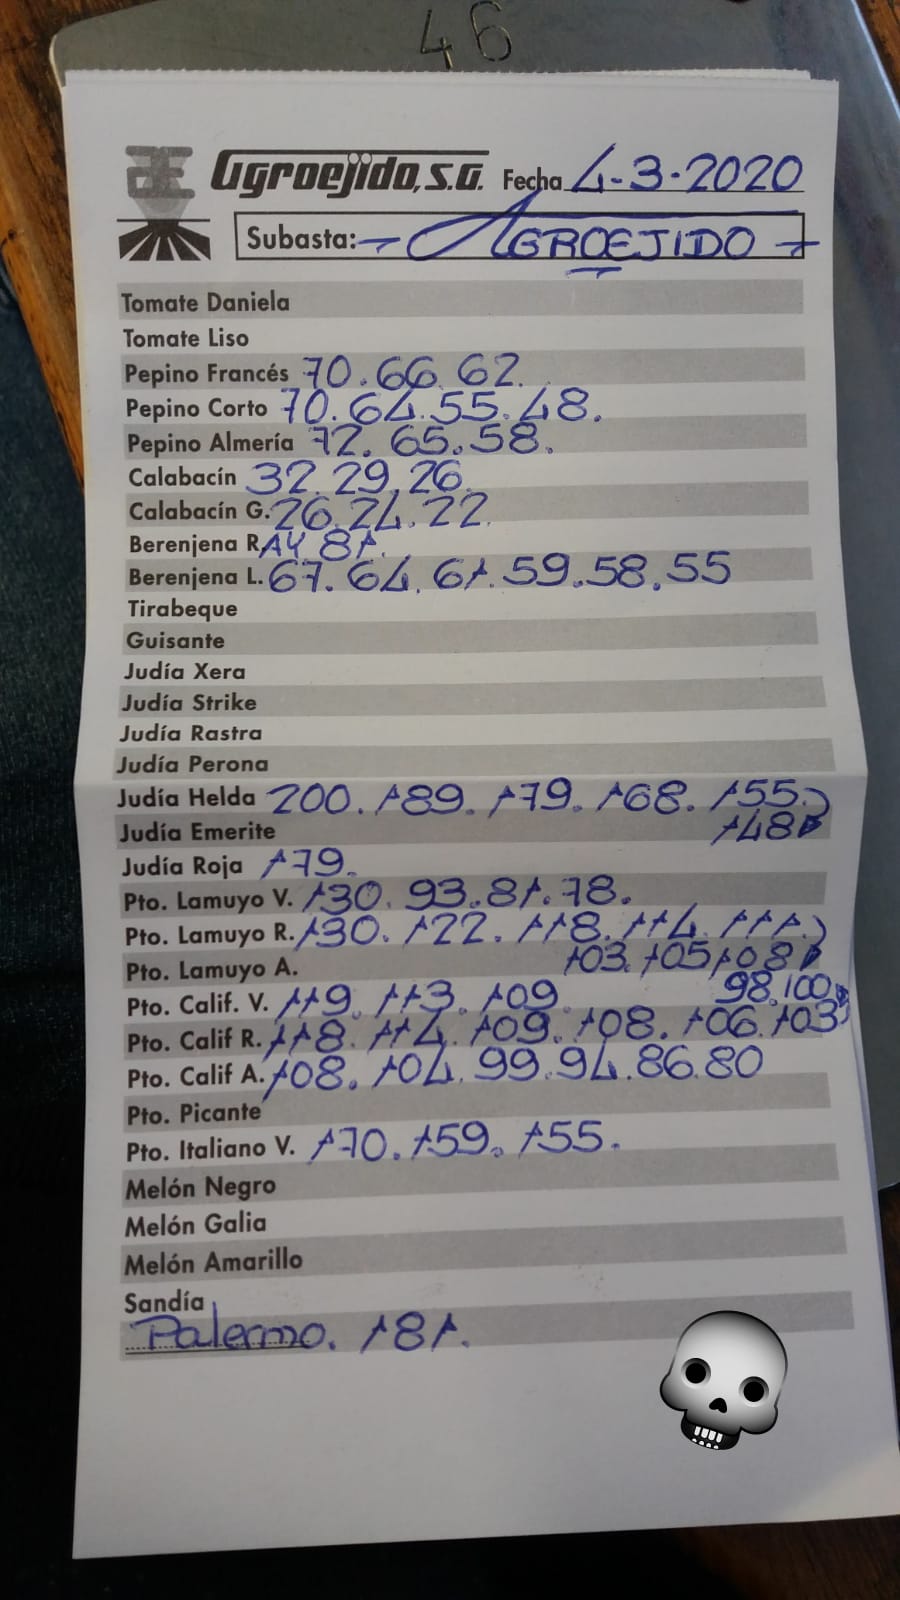 46
Agroejido, S.A. Fecha 4-3-2020
Subasta: - AGROEJIDO -
Tomate Daniela
Tomate Liso
Pepino Francés 70. 66. 62.
Pepino Corto 70. 64. 55. 48.
Pepino Almería 72. 65. 58.
Calabacín 32. 29. 26.
Calabacín G. 26. 24. 22.
Berenjena RAY 81.
Berenjena L. 67. 64. 61. 59. 58. 55
Tirabeque
Guisante
Judía Xera
Judía Strike
Judía Rastra
Judía Perona
Judía Helda 200. 189. 179. 168. 155.
Judía Emerite 148
Judía Roja 179.
Pto. Lamuyo V. 130. 93. 81. 78.
Pto. Lamuyo R. 130. 122. 118. 114. 111.
Pto. Lamuyo A. 103. 105 108
Pto. Calif. V. 119. 113. 109 98. 100
Pto. Calif R. 118. 114. 109. 108. 106. 103
Pto. Calif A. 108. 104. 99. 94. 86. 80
Pto. Picante
Pto. Italiano V. 170. 159. 155.
Melón Negro
Melón Galia
Melón Amarillo
Sandía
Palermo. 181.